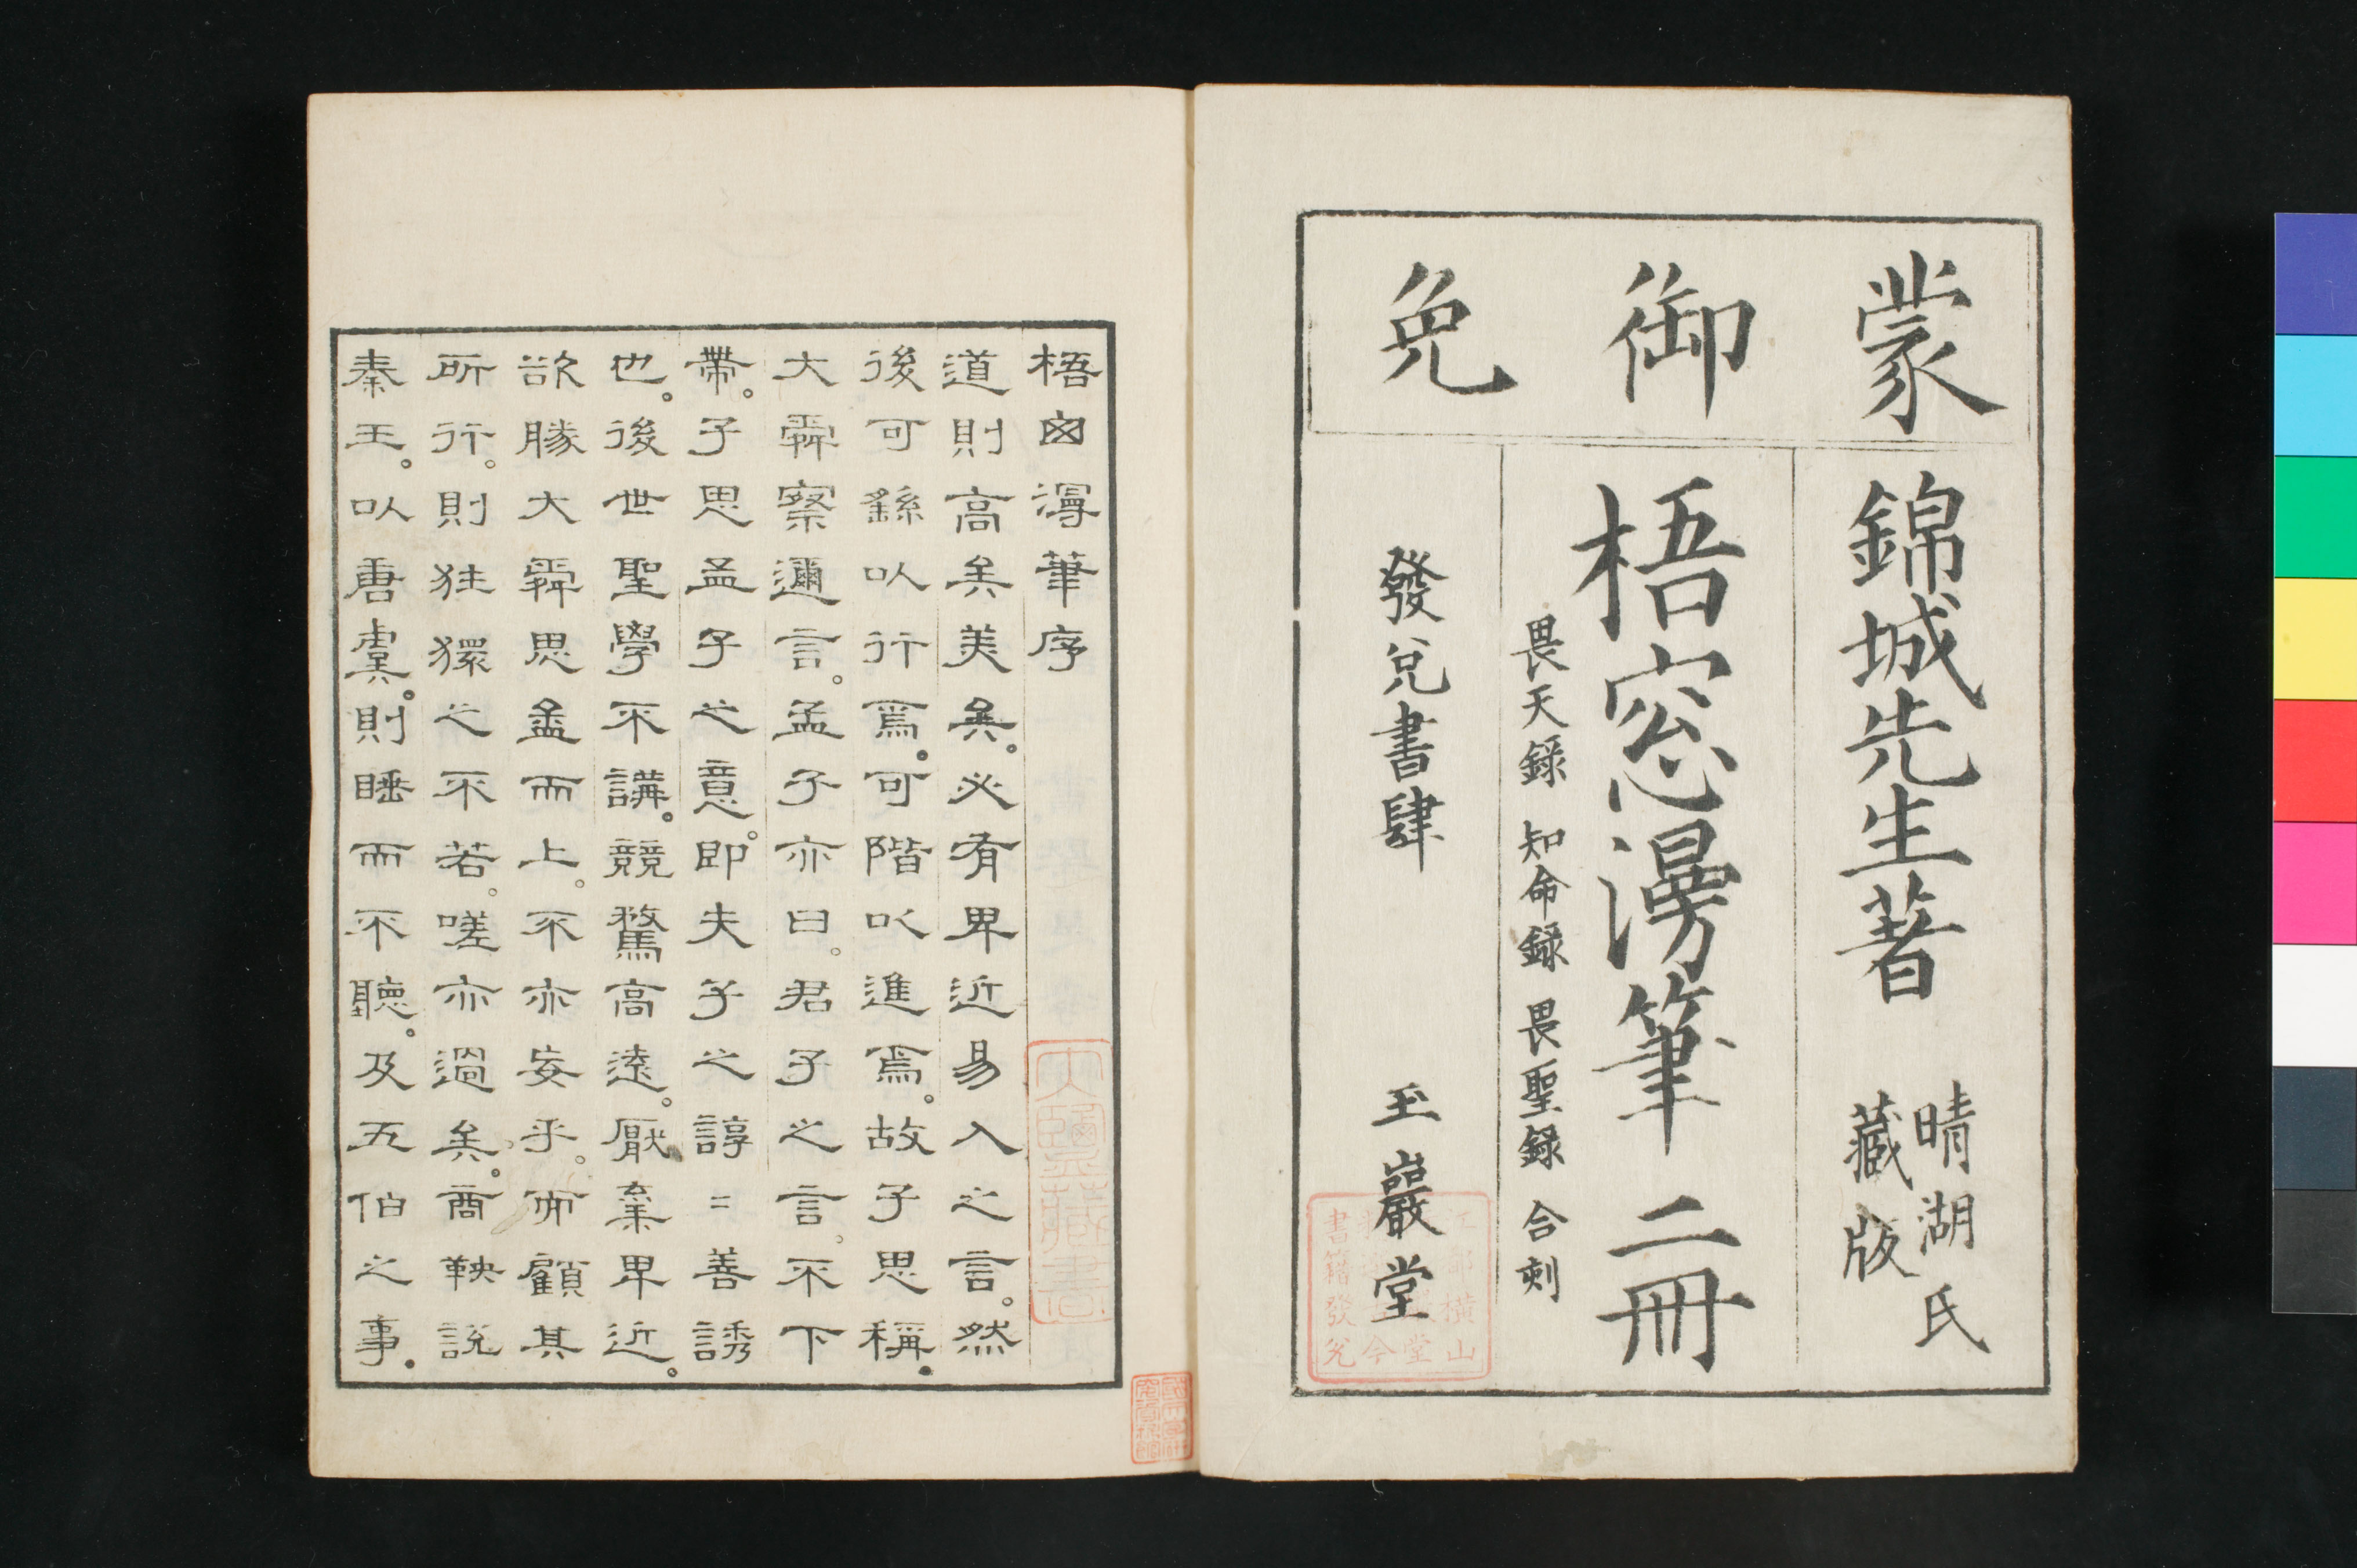 蒙御免
錦城先生著
晴湖氏
藏版
梧窓漫筆 二冊
畏天錄 知命錄 畏聖錄 合刻
發兌書肆 玉巖堂
梧囱漫筆序
道則高矣美矣。必有卑近易入之言。然
後可繇以行焉。可階以進焉。故子思稱。
大舜察邇言。孟子亦曰。君子之言。不下
帶。子思孟子之意。即夫子之諄〻善誘
也。後世聖學不講。競騖高遠。厭棄卑近。
欲勝大舜思孟而上。不亦妄乎。而顧其
所行。則狂獧之不若。嗟亦過矣。商鞅說
秦王。以唐虞。則睡而不聽。及五伯之事。